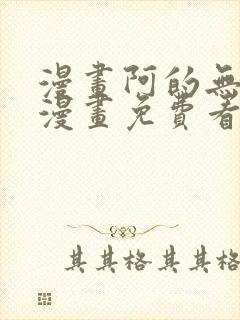 漫畫阿的無
漫畫免費看
其其格其其格